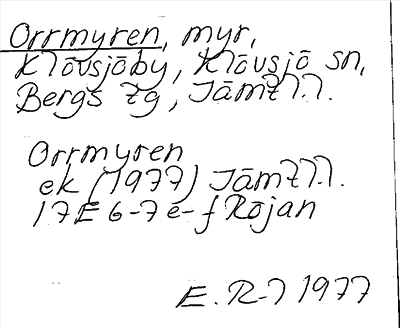 Orrmyren, myr,
Klövsjöby, Klövsjö sn,
Bergs tg, Jämtl.
Orrmyren
ek (1977) Jämtl.
17E 6-7 e-f Röjan
E. R-l 1977